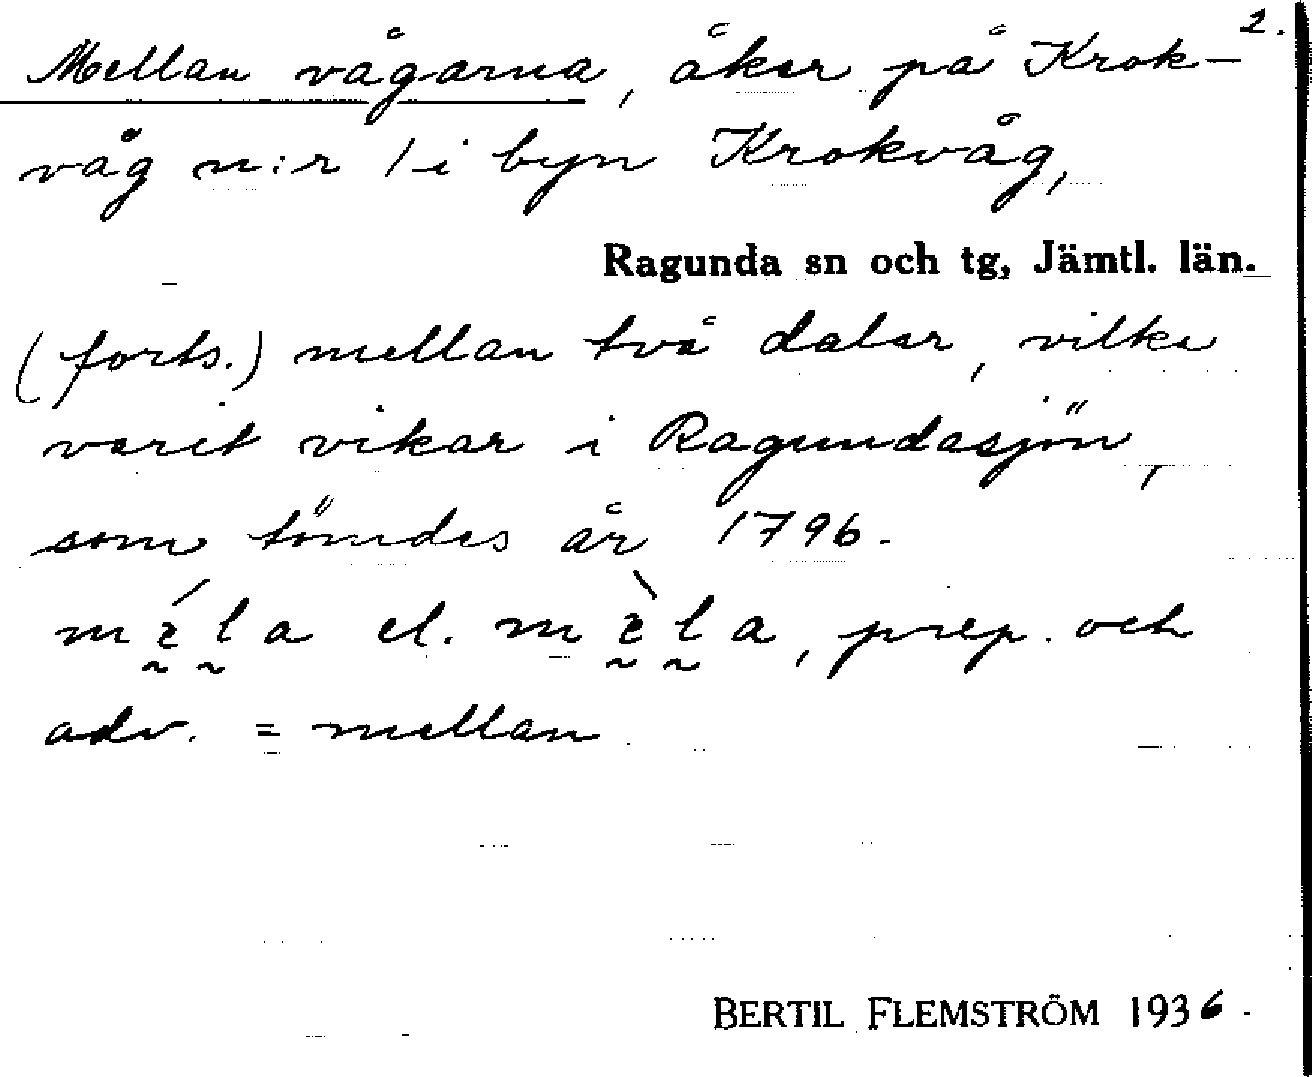 2.
Mellan vågarna, åker på Krok-
våg n:r 1 i byn Krokvåg,
Ragunda sn och tg, Jämtl. län.
(forts.) mellan två dalar, vilka
varit vikar i Ragundasjön,
som tömdes år 1796.
mɛ́la el. mɛ̀la, prep. och
adv. = mellan
BERTIL FLEMSTRÖM 1936.